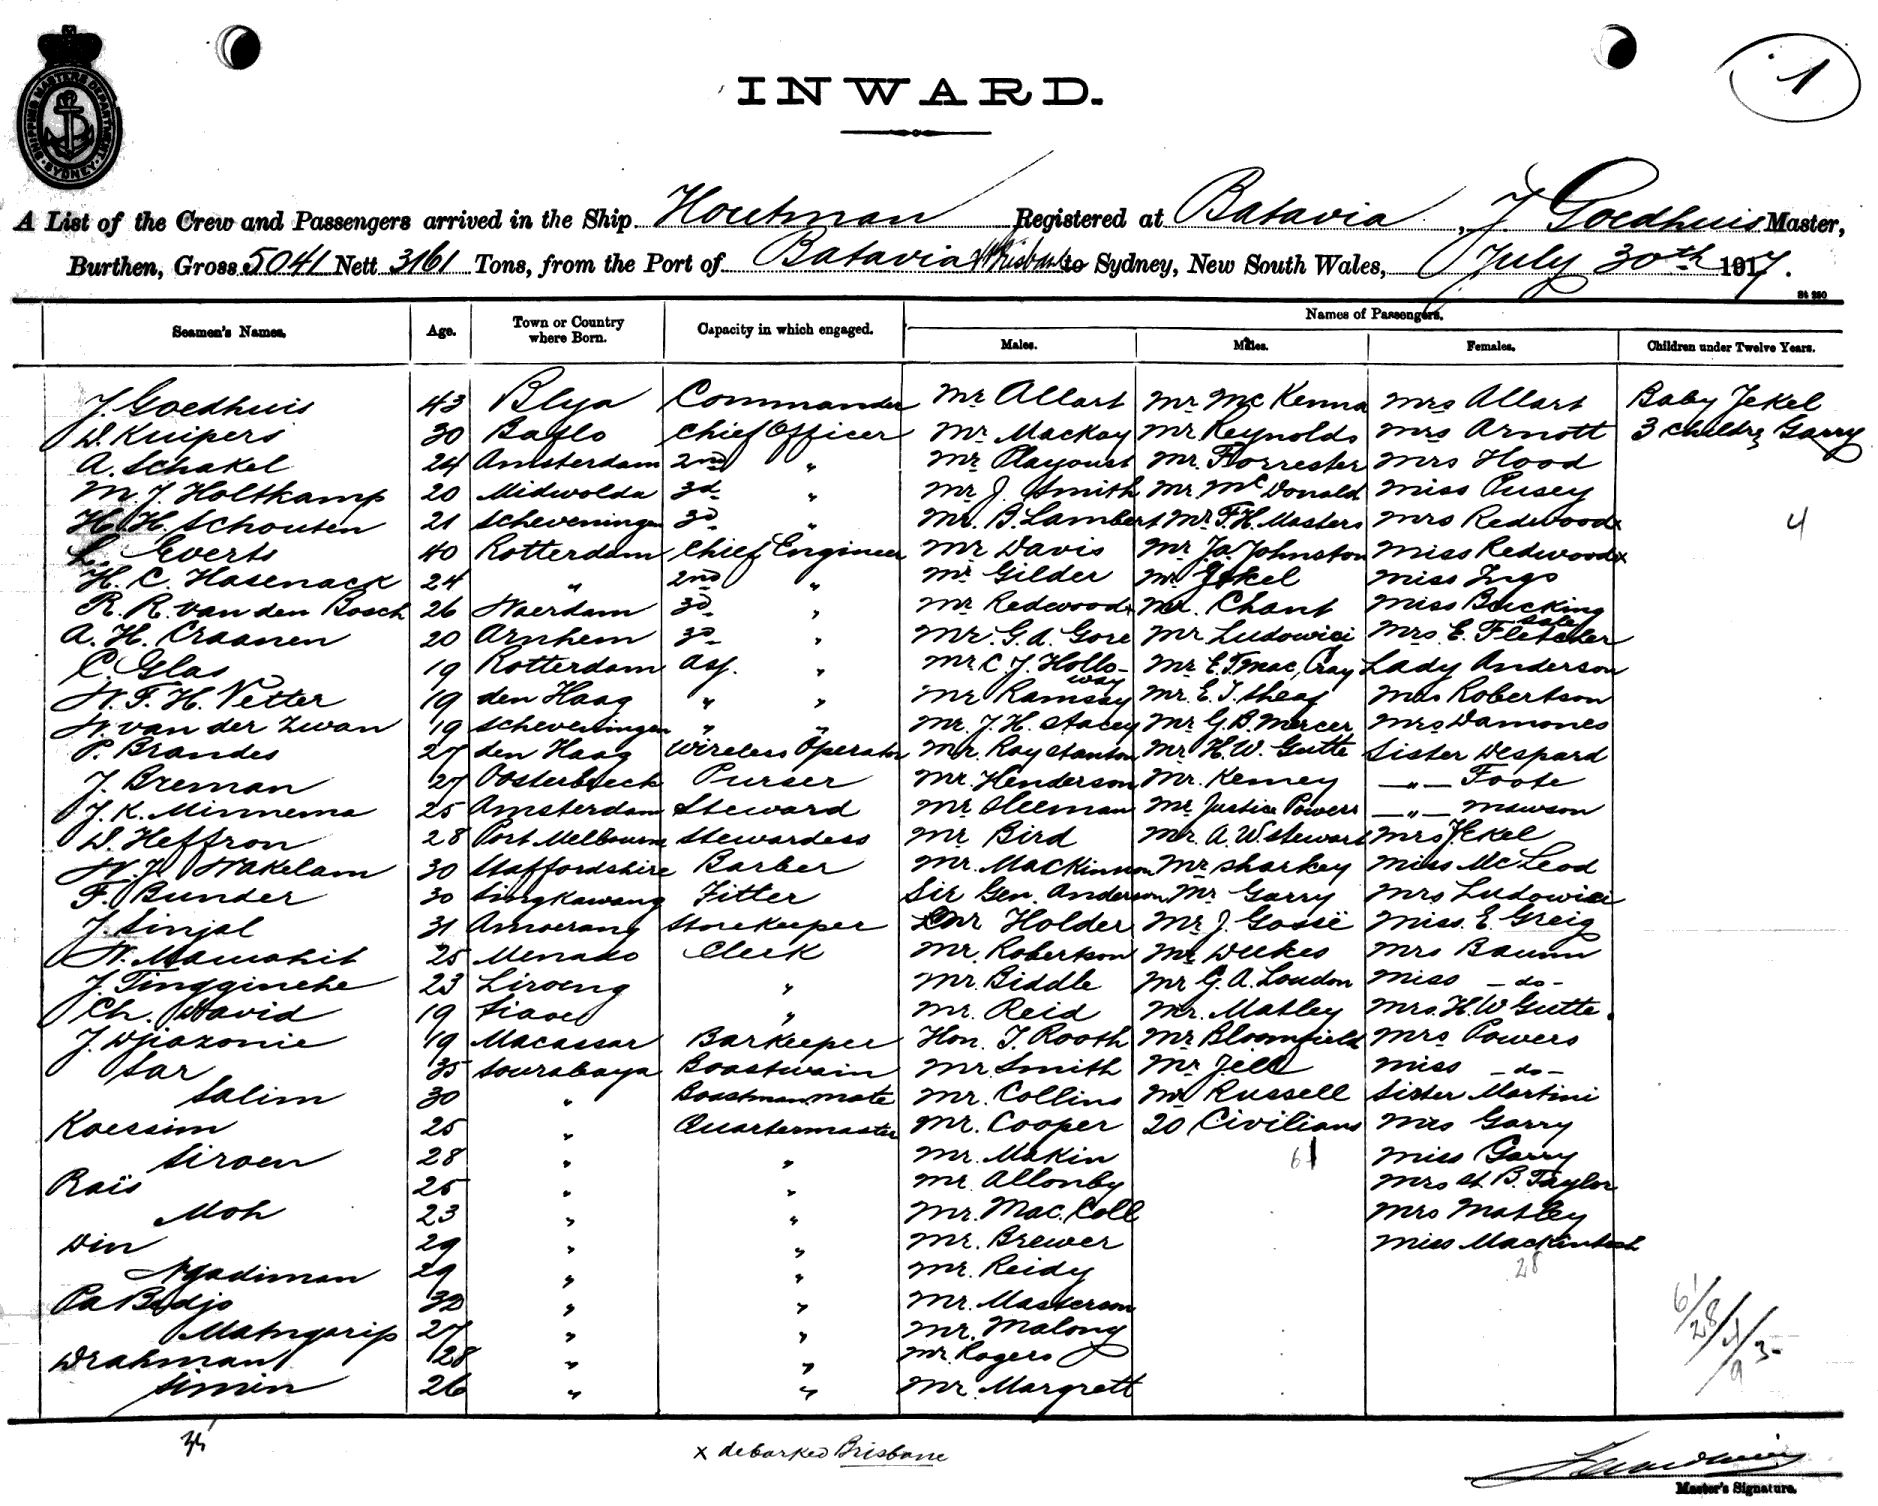 SHIPPING MASTERS DEPARTMENT SYDNEY
1
INWARD.
A List of the Crew and Passengers arrived in the Ship Houtman Registered at Batavia, J. Goedhuis Master,
Burthen, Gross 5041 Nett 3161 Tons, from the Port of Batavia & Brisbane to Sydney, New South Wales, July 30th 1917.
St 280
Names of Passengers.
Seamen's Names. Age. Town or Country where Born. Capacity in which engaged. Males. Males. Females. Children under Twelve Years.
J. Goedhuis 43 Blya Commander Mr Allart Mr McKenna Mrs Allart Baby Jekel
D. Kuipers 30 Baflo Chief Officer Mr Mackay Mr Reynolds Mrs Arnott 3 children Garry
A. Schakel 24 Amsterdam 2nd " Mr Playoust Mr Forrester Mrs Hood
M. J. Holtkamp 20 Midwolda 3d " Mr J. Smith Mr McDonald Miss Pusey
H. H. Schouten 21 Scheveningen 3d " Mr. B. Lambert Mr F. H. Masters Mrs Redwood x 4
L. Everts 40 Rotterdam Chief Engineer Mr Davis Mr Ja. Johnston Miss Redwood x
H. C. Hasenack 24 " 2nd " Mr Gilder Mr Jekel Miss Ings
R. R. van den Bosch 26 Naerdam 3d " Mr Redwood x Mr. Chant Miss Buckingsale
A. H. Craanen 20 Arnhem 3d " Mr. G. A. Gore Mr Ludowici Mrs. E. Fletcher
C. Glas 19 Rotterdam Ass. " Mr C. J. Holloway Mr E. T. MacCray Lady Anderson
W. F. H. Vetter 19 den Haag " " Mr Ramsay Mr. E. J. Sheaf Mrs Robertson
W. van der Zwan 19 Scheveningen " " Mr. J. H. Stacey Mr G. B. Mercer Mrs Damones
P. Brandes 27 den Haag Wireless Operator Mr. Ray Stanton Mr H. W. Gutte Sister Despard
J. Breman 27 Oosterbeeck Purser Mr. Henderson Mr. Kemey — " — Foote
J. K. Minnema 25 Amsterdam Steward Mr Sleeman Mr Justice Powers — " — Mawson
D. Heffron 28 Port Melbourne Stewardess Mr Bird Mr. A. W. Stewart Mrs Jekel
W. J. Wakelam 30 Staffordshire Barber Mr. Mackinnon Mr Sharkey Miss McLeod
F. Bunder 30 Singkawang Fitter Sir Gen. Anderson Mr Garry Mrs Ludowici
J. Sinjal 31 Amoerang Storekeeper Mr Holder Mr J. Gossë Miss. E. Greig
W. Mamahit 25 Menado Clerk Mr. Robertson Mr Deekes Mrs Baunn
J. Tinggineke 23 Liroeng " Mr. Biddle Mr G. A. Loudon Miss — do —
Ch. David 19 Siaoe " Mr. Reid Mr. Matley Mrs. H. W. Gutte.
J. Djiazonie 19 Macassar Barkeeper Hon. T. Rooth Mr Bloomfield Mrs Powers
Sar 35 Sourabaya Boastwain Mr Smith Mr Jell Miss — do —
Salim 30 " Boastman mate Mr. Collins Mr Russell Sister Martini
Koessim 25 " Quartermaster Mr. Cooper 20 Civilians Mrs Garry
Siroen 28 " " Mr. Makin 61 Miss Garry
Raïs 25 " " Mr. Allonby Mrs St. B. Taylor
Moh 23 " " Mr. MacColl Mrs Matley
Din 29 " " Mr. Brewer Miss Mackintosh
Ngadiman 29 " " Mr. Reidy 28
Pa Bedjo 32 " " Mr. Masterson
Matngarip 27 " " Mr. Malony
Drahman 28 " " Mr. Rogers
Simin 26 " " Mr. Margrett
61/28/4/93
35
x debarked Brisbane
J. Goedhuis
Master's Signature.